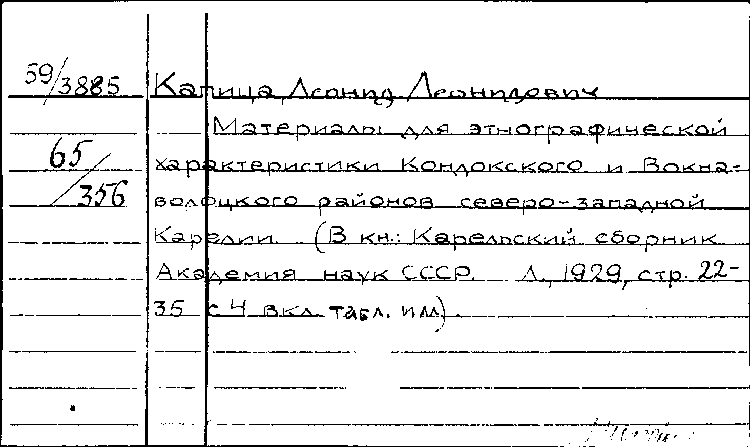 59/3885 Капица, Леонид Леонидович
Материалы для этнографической
65/356
характеристики Кондокского и Вокна-
волоцкого районов северо-западной
Карелии. (В кн.: Карельский сборник
Академия наук СССР. Л., 1929, стр. 22-
35 с 4 вкл. табл. илл).